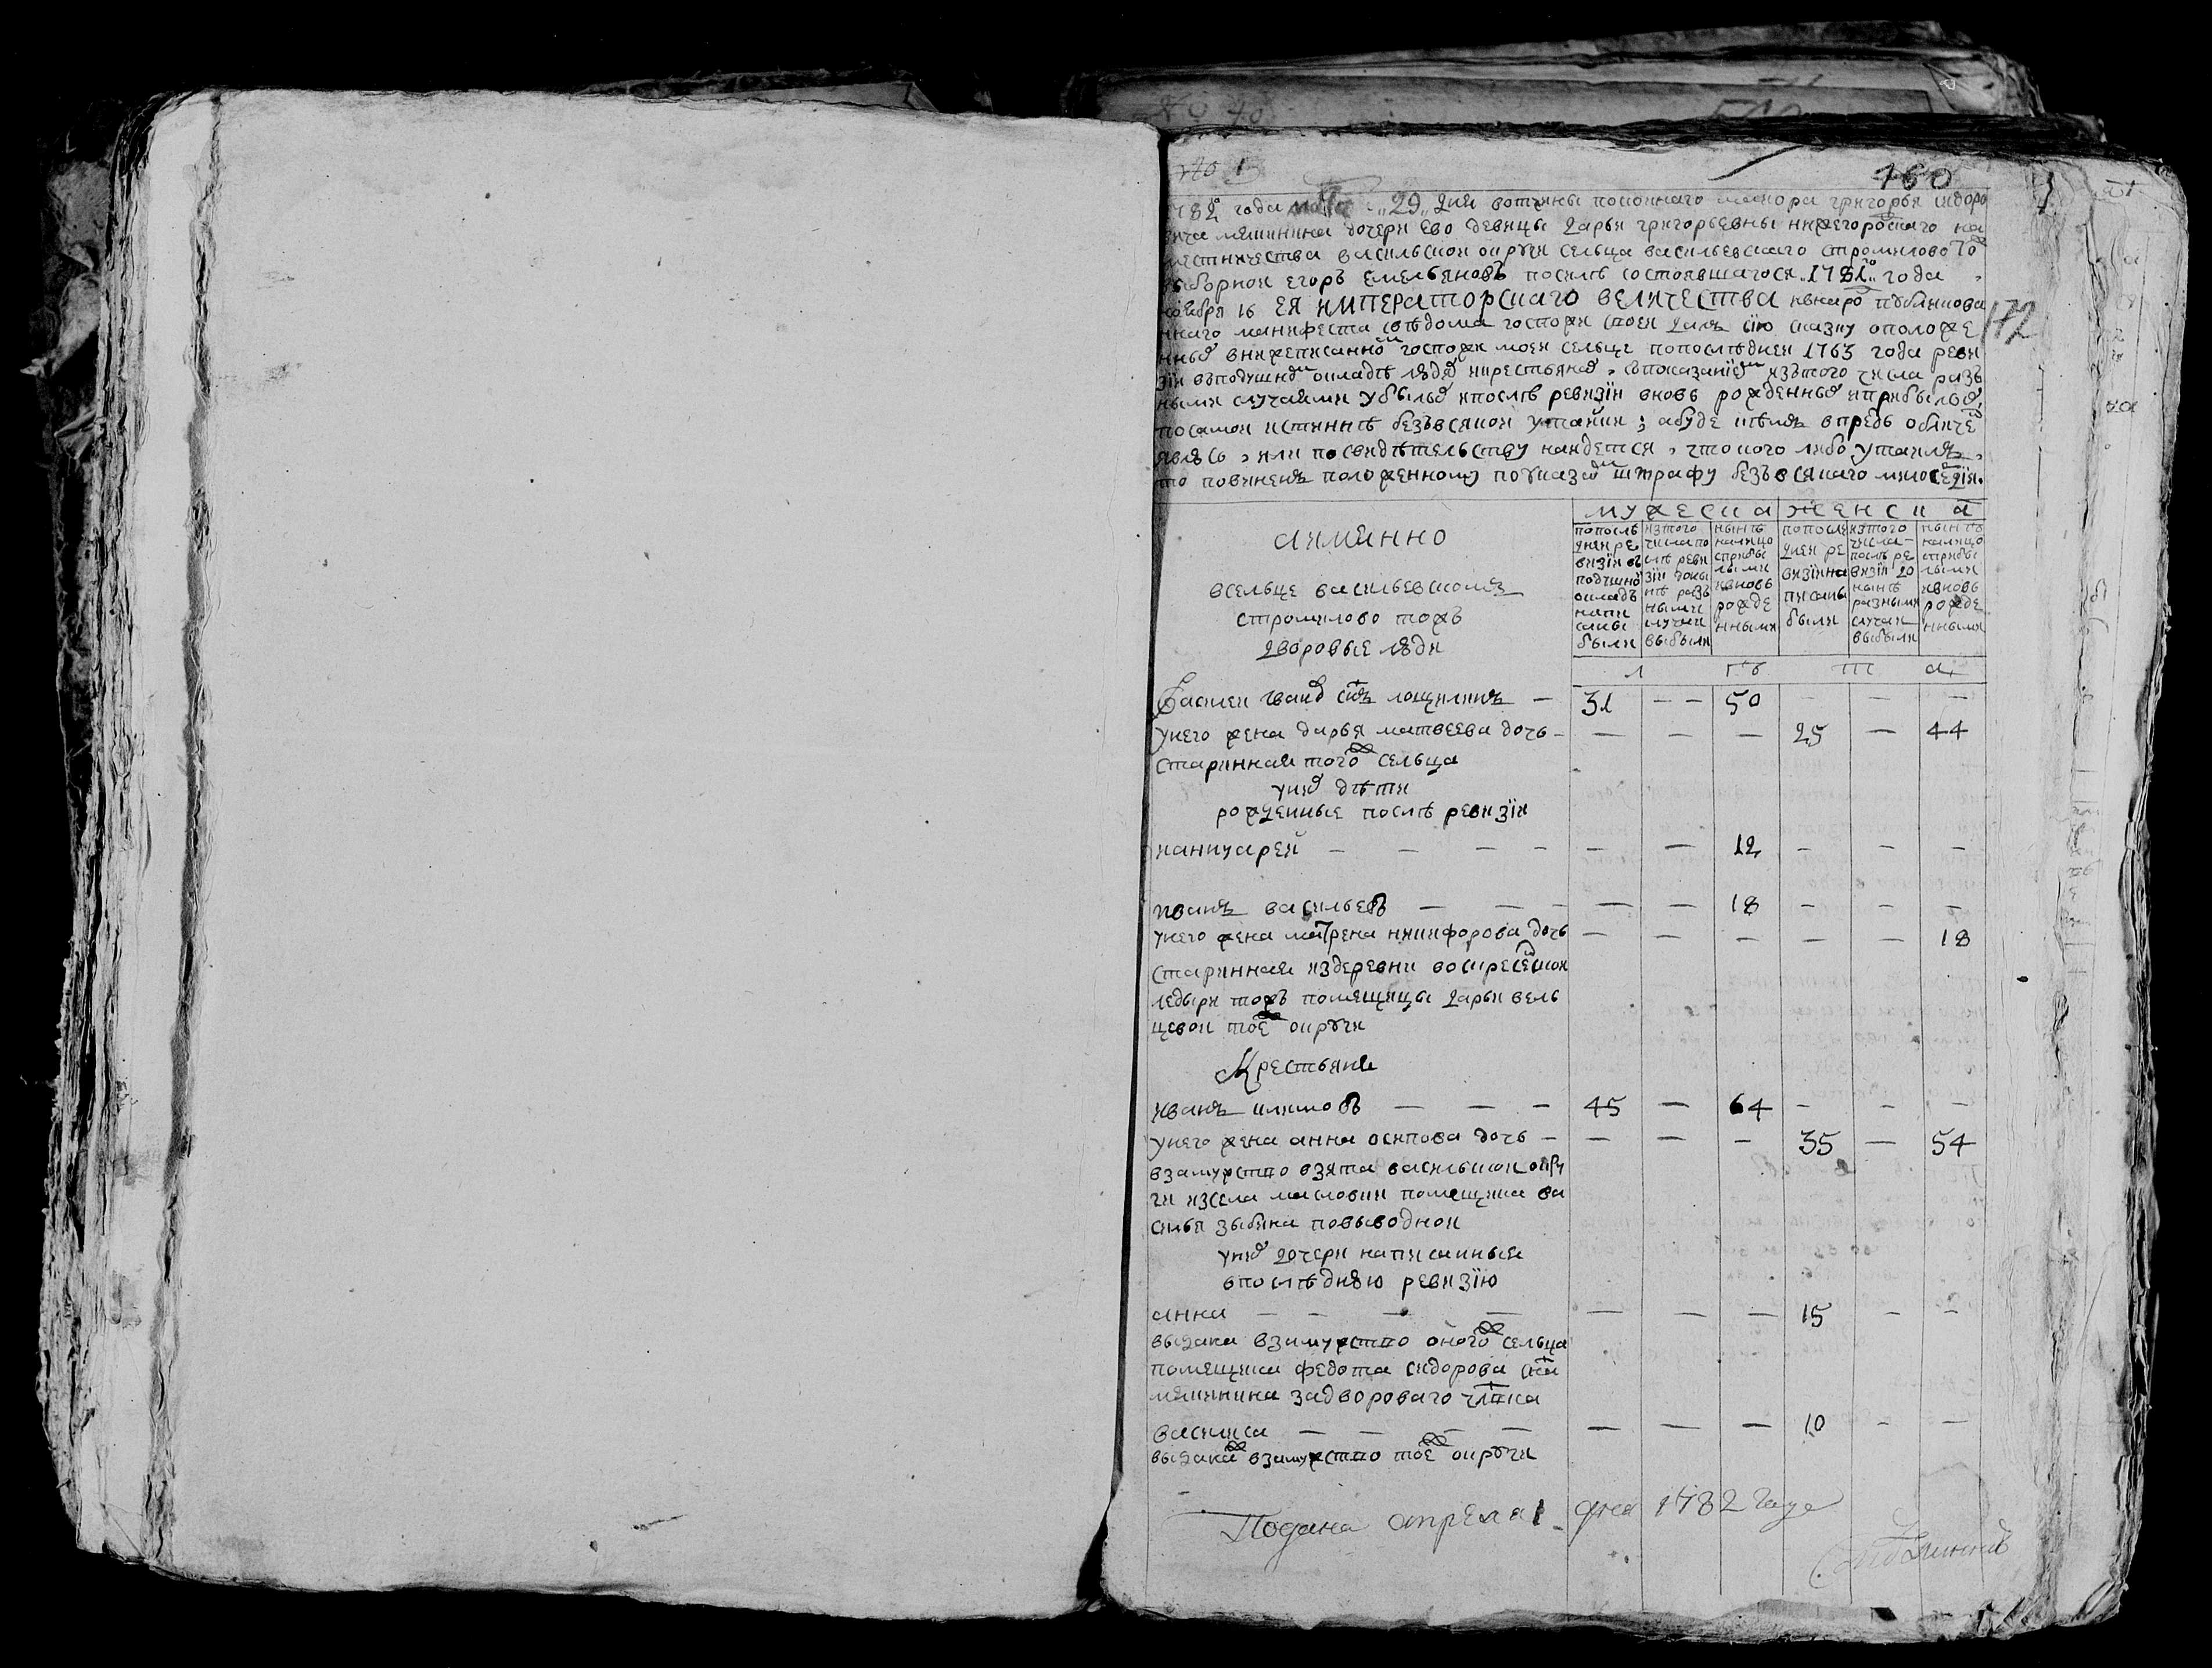 № 1
160
1782 года марта 29 дня вотчины покоинаго маиора григорья сидоро
вича мяшинина дочери ево девицы дарьи григорьевны нижегородскаго на
местничества васильскои округи сельца васильевскаго стромилово то
выборнои егоръ емельяновъ посилѣ состоявшагося 1781го года
ноября 16 ЕЯ ИМПЕРАТОРСКАГО ВЕЛИЧЕСТВА івнаро публикова
172
ннаго манифеста свѣдома госпожи своеи далъ сию сказку оположе
нныхъ внижеписанномъ госпожи моеи сельце попослѣднеи 1763 года реви
зїи вподушномъ окладѣ людяхъ икрестьянахъ, спокаsанїемъ изътого числа разъ
ными случаями убылыхъ ипослѣ ревизїи вновь рожденныхъ иприбылыхъ
посамои истиннѣ безъвсякои утаики; абуде кѣмъ впредь обличенъ
явлюсь, или посвидѣтельству наидется, чтокого либо утаилъ,
то повиненъ положенному поуказомъ штрафу безъвсякаго милосердїя.
мужеска женска
аимянно
попослѣ
днеи ре
визїи въ
подушно
окладъ
напи
саны
были
изтого
числа по
слѣ реви
зїи доны
нѣ разъ
ными
случаи
выбыли
нынѣ
налицо
сприбы
лыми
ивновь
рожде
нными
попослѣ
днеи ре
визїи на
писаны
были
изтого
числа
послѣ ре
визїи до
нынѣ
разными
случаи
выбыли
нынѣ
налицо
сприбы
лыми
ивновь
рожде
нными
всельце васильевскомъ
стромилово тожъ
дворовые люди
л ѣ т а
Василеи ивановъ снъ лощилинъ — 31 — — 50 — — —
унего жена дарья матвеева дочь — — — — 25 — 44
стариннаи тогожъ сельца
унихъ дѣти
рожденные послѣ ревизїи
ианнуареи — — — — — — 12 — — —
иванъ васильевъ — — — — — 18 — — —
унего жена матрена никифорова дочь — — — — — 18
стариннаи издеревни воскресенскои
ледыри тожъ помещицы дарьи вель
цовои тоежъ округи
Крестьяни
иванъ климовъ — — — 45 — 64 — — —
унего жена анна осипова дочь — — — — 35 — 54
взамужство взята васильскои окру
ги изсела масловки помещика ва
силья зыбина повыводнои
унихъ дочери написанныи
впослѣднюю ревизїю
анна — — — — — — — 15 — —
выдана взамужство оногожъ сельца
помещика федота сидорова сна
мяшинина задвороваго члвка
василиса — — — — — — — 10 — —
выданажъ взамужство тоежъ округи
Подана апреля 1 дня 1782 году